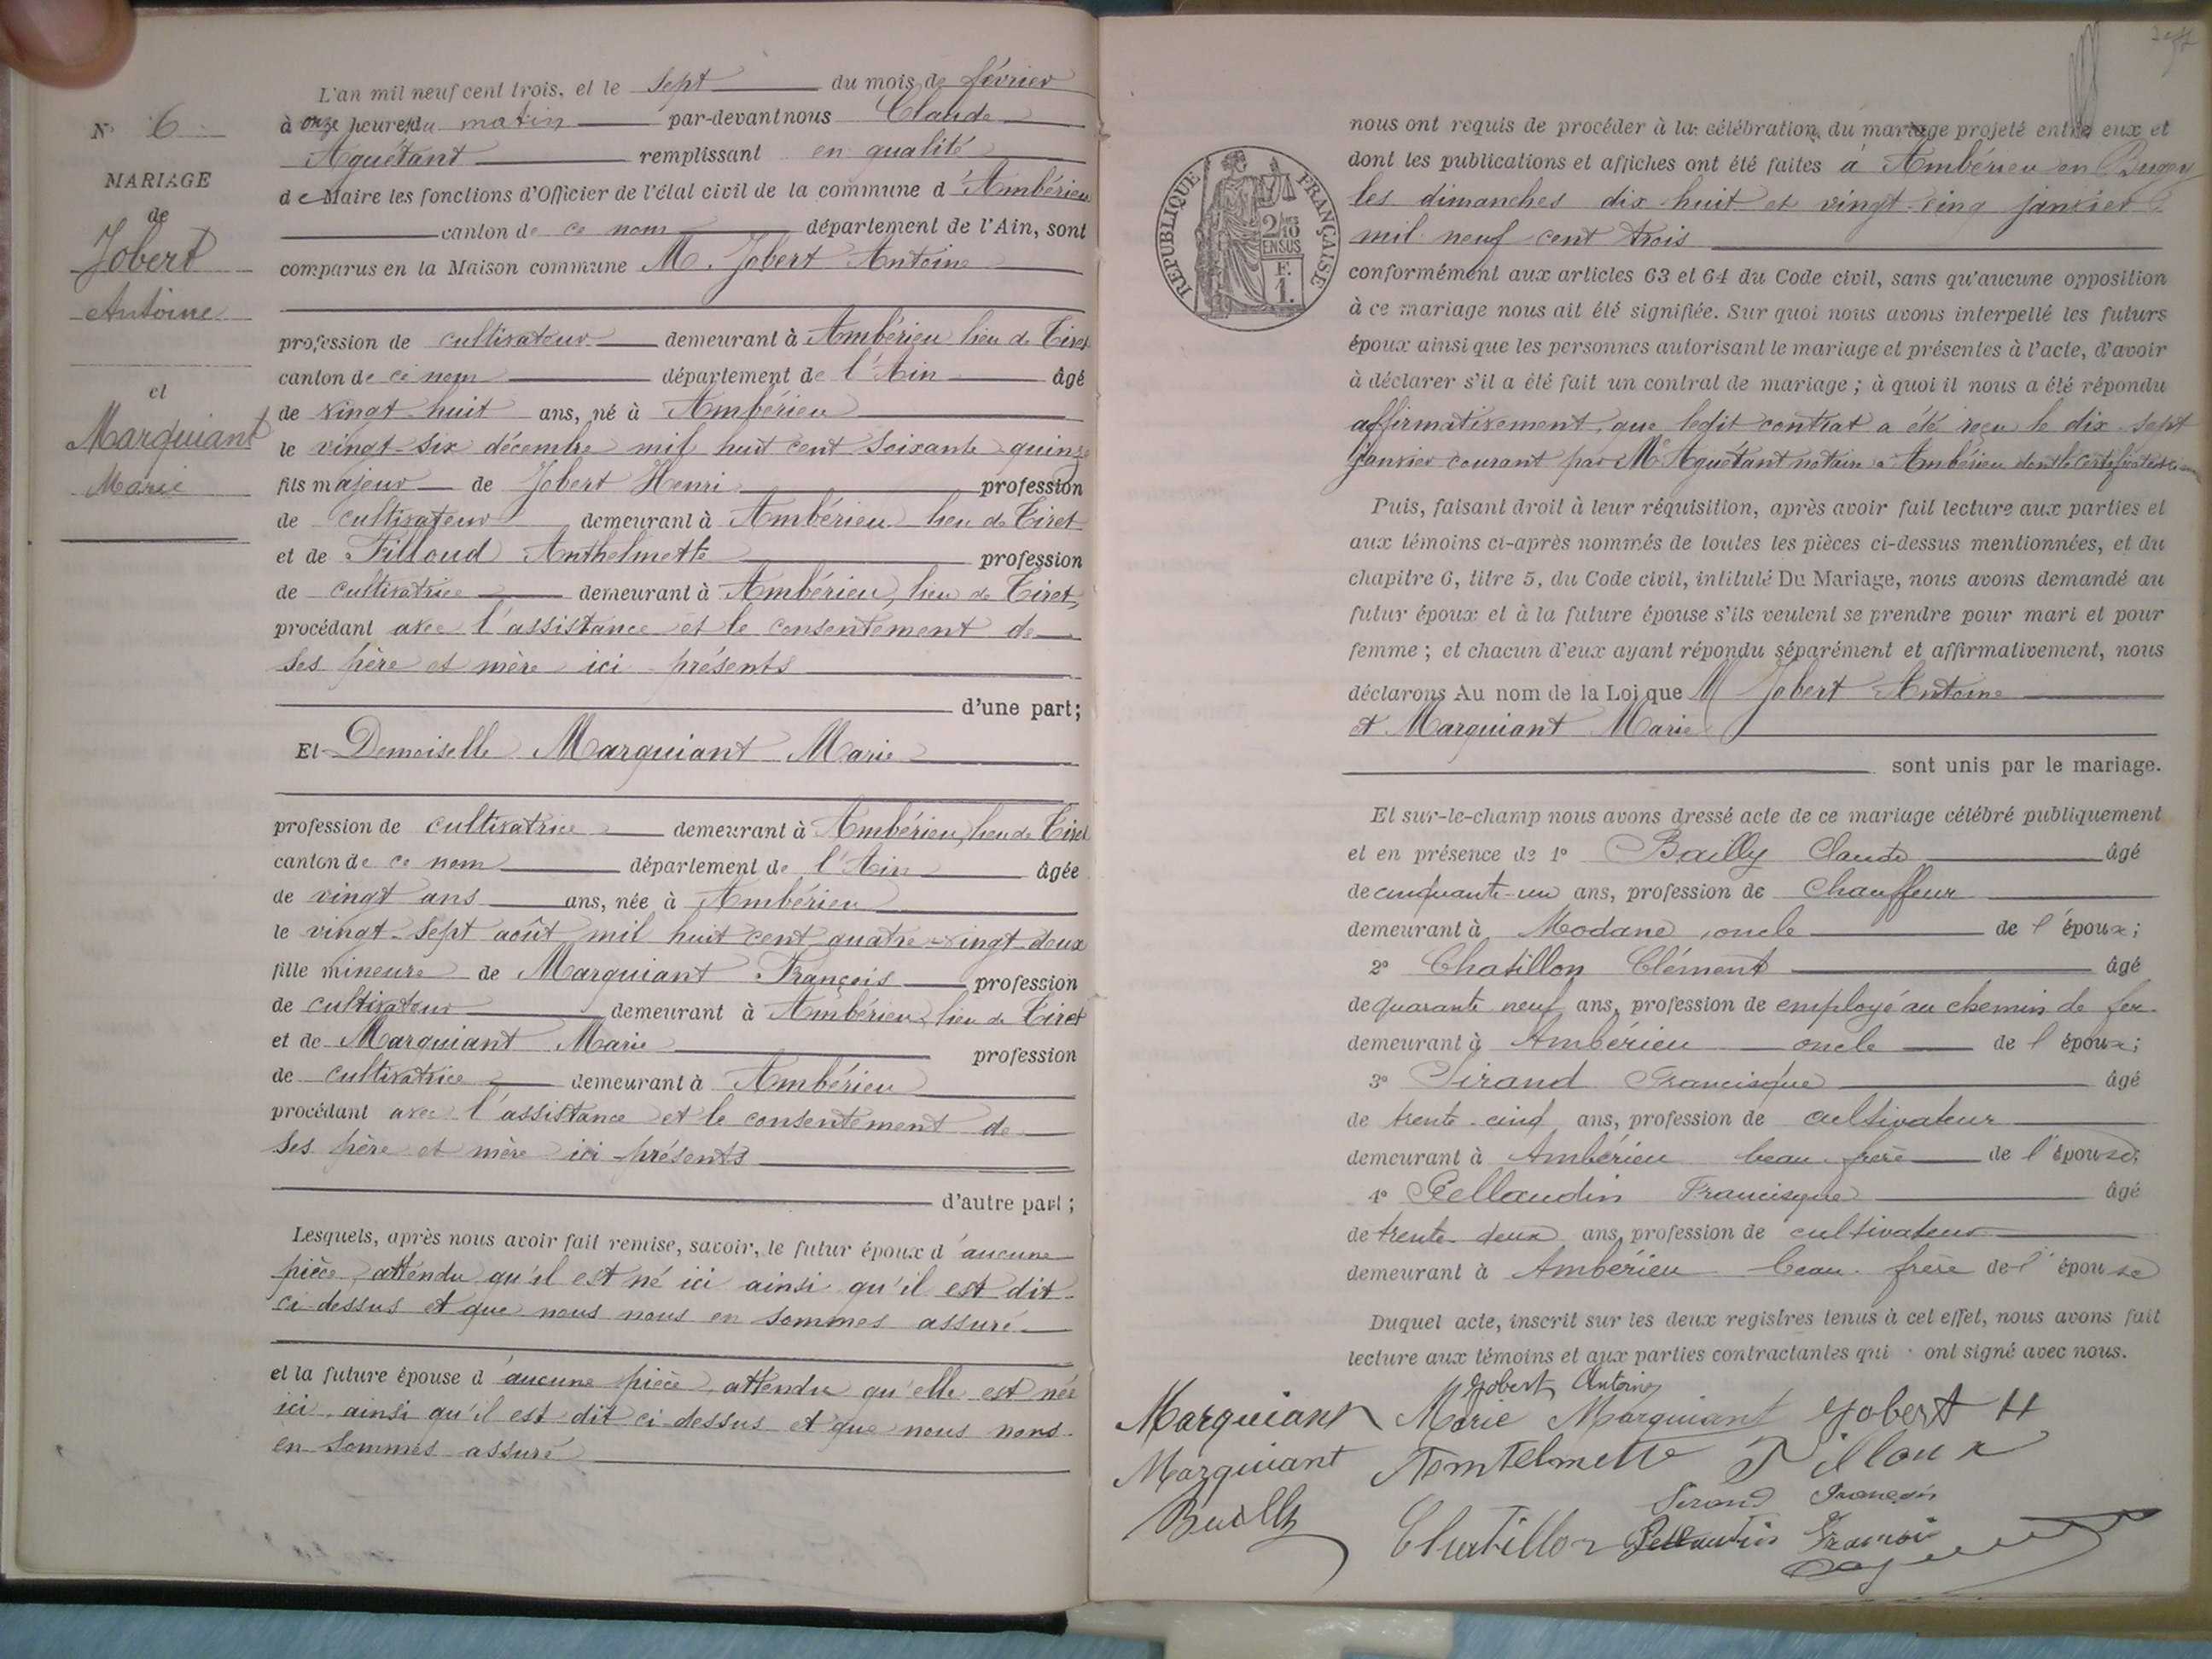 N° 6
MARIAGE
de
Jobert
Antoine
et
Marguiant
Marie
L'an mil neuf cent trois, et le sept du mois de février
à onze heures du matin par-devant nous Claude
Aguétant remplissant en qualité
de Maire les fonctions d'Officier de l'état civil de la commune d'Ambérieu
canton de ce nom département de l'Ain, sont
comparus en la Maison commune M. Jobert Antoine
profession de cultivateur demeurant à Ambérieu lieu de Tiret
canton de ce nom département de l'Ain âgé
de vingt-huit ans, né à Ambérieu
le vingt-six décembre mil huit cent soixante quinze
fils majeur de Jobert Henri profession
de cultivateur demeurant à Ambérieu lieu de Tiret
et de Filloud Anthelmette profession
de cultivatrice demeurant à Ambérieu, lieu de Tiret,
procédant avec l'assistance et le consentement de
ses père et mère ici présents
d'une part;
Et Demoiselle Marguiant Marie
profession de cultivatrice demeurant à Ambérieu, lieu de Tiret
canton de ce nom département de l'Ain âgée
de vingt ans ans, née à Ambérieu
le vingt-sept août mil huit cent quatre-vingt-deux
fille mineure de Marguiant François profession
de cultivateur demeurant à Ambérieu, lieu de Tiret
et de Marguiant Marie profession
de cultivatrice demeurant à Ambérieu
procédant avec l'assistance et le consentement de
ses père et mère ici présents
d'autre part;
Lesquels, après nous avoir fait remise, savoir, le futur époux d'aucune
pièce, attendu qu'il est né ici ainsi qu'il est dit
ci-dessus et que nous nous en sommes assuré
et la future épouse d'aucune pièce, attendu qu'elle est née
ici, ainsi qu'il est dit ci-dessus et que nous nous
en sommes assuré
REPUBLIQUE FRANÇAISE
2/10
EN SUS
F.
1.
nous ont requis de procéder à la célébration du mariage projeté entre eux et
dont les publications et affiches ont été faites à Ambérieu en Bugey
les dimanches dix-huit et vingt-cinq janvier
mil neuf cent trois
conformément aux articles 63 et 64 du Code civil, sans qu'aucune opposition
à ce mariage nous ait été signifiée. Sur quoi nous avons interpellé les futurs
époux ainsi que les personnes autorisant le mariage et présentes à l'acte, d'avoir
à déclarer s'il a été fait un contrat de mariage; à quoi il nous a été répondu
affirmativement, que ledit contrat a été reçu le dix-sept
janvier courant par Me Aguétant notaire à Ambérieu dont le certificat
Puis, faisant droit à leur réquisition, après avoir fait lecture aux parties et
aux témoins ci-après nommés de toutes les pièces ci-dessus mentionnées, et du
chapitre 6, titre 5, du Code civil, intitulé Du Mariage, nous avons demandé au
futur époux et à la future épouse s'ils veulent se prendre pour mari et pour
femme; et chacun d'eux ayant répondu séparément et affirmativement, nous
déclarons Au nom de la Loi que M Jobert Antoine
et Marguiant Marie
sont unis par le mariage.
Et sur-le-champ nous avons dressé acte de ce mariage célébré publiquement
et en présence de 1° Bailly Claude âgé
de cinquante-un ans, profession de Chauffeur
demeurant à Modane, oncle de l'époux;
2° Chatillon Clément âgé
de quarante neuf ans, profession de employé au chemin de fer
demeurant à Ambérieu oncle de l'époux;
3° Sirand Francisque âgé
de trente-cinq ans, profession de cultivateur
demeurant à Ambérieu beau-frère de l'épouse;
4° Pellaudin Francisque âgé
de trente-deux ans, profession de cultivateur
demeurant à Ambérieu beau-frère de l'épouse
Duquel acte, inscrit sur les deux registres tenus à cet effet, nous avons fait
lecture aux témoins et aux parties contractantes qui ont signé avec nous.
Jobert Antoine
Marguiant Marie Marguiant Jobert H
Marguiant Anthelmette Filloux
Sirand François
Bailly Chatillon Pellaudin François